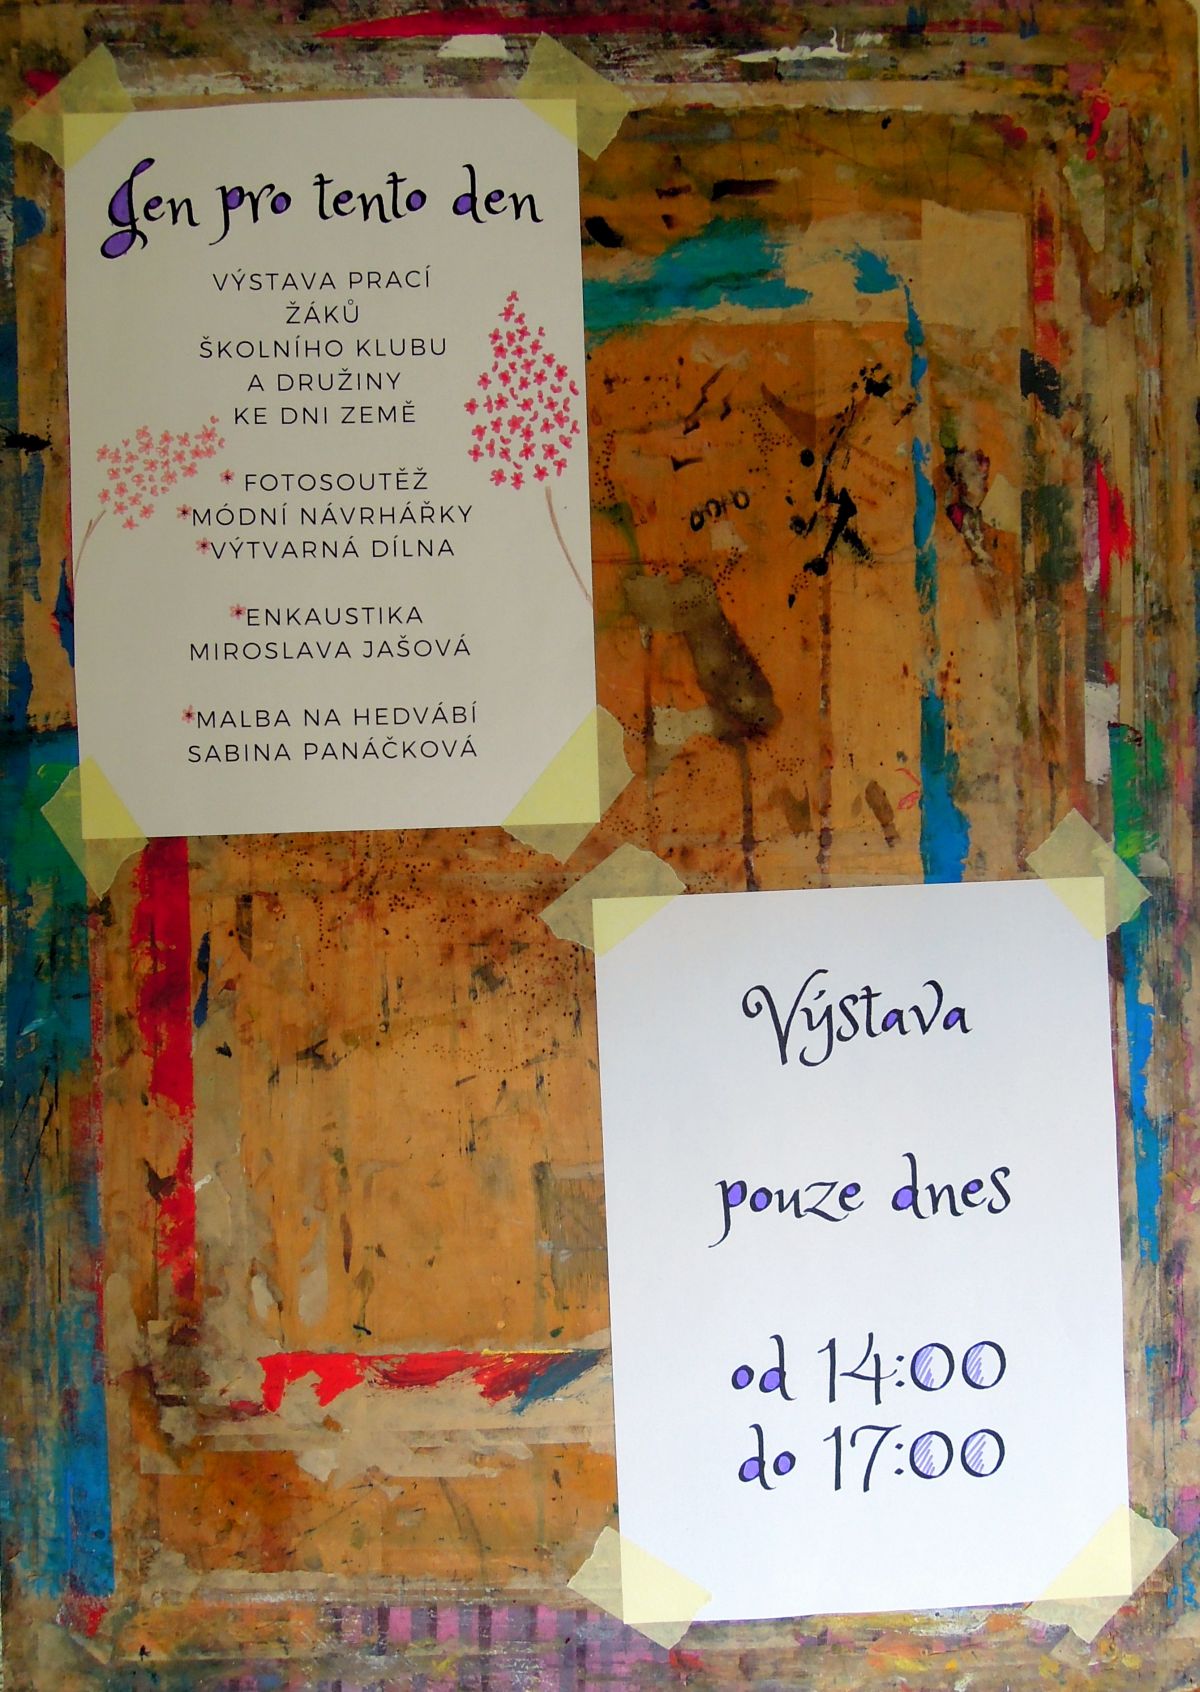 Jen pro tento den
VÝSTAVA PRACÍ
ŽÁKŮ
ŠKOLNÍHO KLUBU
A DRUŽINY
KE DNI ZEMĚ
* FOTOSOUTĚŽ
*MÓDNÍ NÁVRHÁŘKY
*VÝTVARNÁ DÍLNA
*ENKAUSTIKA
MIROSLAVA JAŠOVÁ
*MALBA NA HEDVÁBÍ
SABINA PANÁČKOVÁ
Výstava
pouze dnes
od 14:00
do 17:00